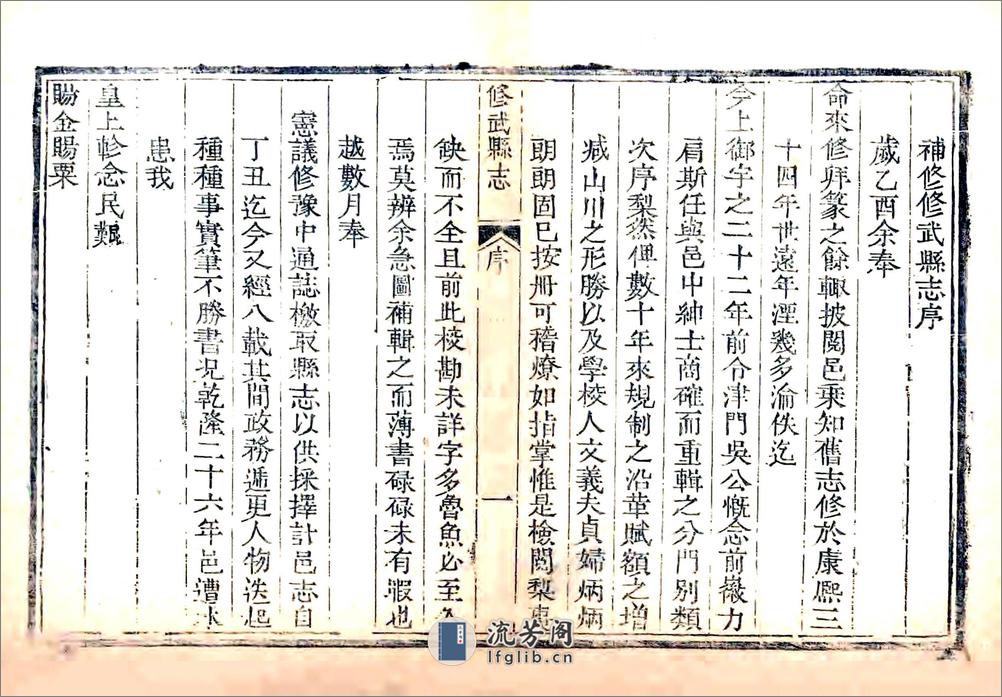 補修修武縣志序
歲乙酉余奉
命來修拜篆之餘輙披閱邑乘知舊志修於康熙三
十四年世遠年湮幾多淪佚迄
今上御宇之二十二年前令津門吳公慨念前徽力
肩斯任與邑中紳士商確而重輯之分門別類
次序梨然俾數十年來規制之沿革賦額之增
减山川之形勝以及學校人文義夫貞婦炳炳
朗朗固已按册可稽燎如指掌惟是檢閱梨
修武縣志
序
一
缺而不全且前此校勘未詳字多魯魚必至
焉莫辨余急圖補輯之而薄書碌碌未有暇也
越數月奉
憲議修豫中通誌檄取縣志以供採擇計邑志自
丁丑迄今又經八載其間政務遞更人物迭起
種種事實筆不勝書况乾隆二十六年邑遭水
患我
皇上軫念民艱
賜金賜粟
流芳阁
lfglib.cn